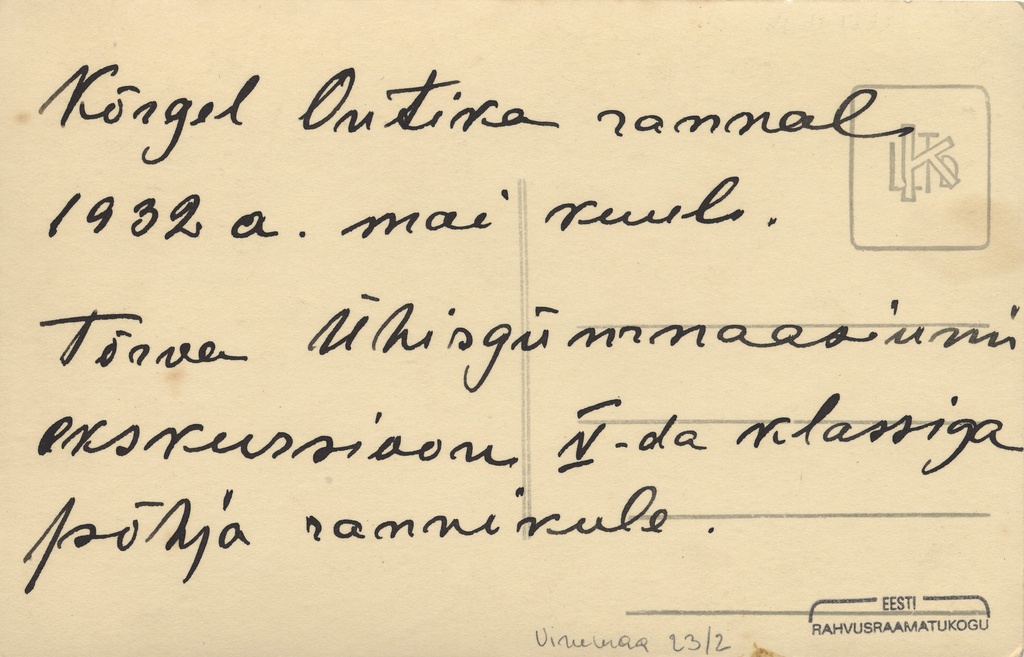 Kõrgel Ontika rannal
1932 a. mai kuul.
Tõrva Ühisgümnaasiumi
ekskursioon V-da klassiga
põhja rannikule.
EESTI
RAHVUSRAAMATUKOGU
Virumaa 23/2